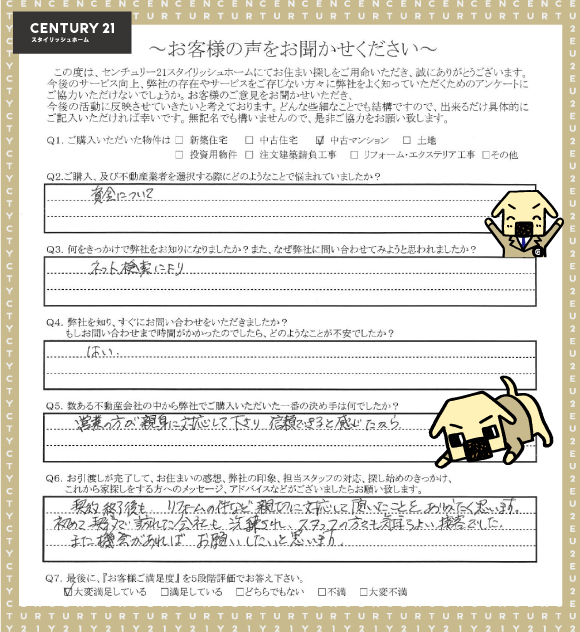 CENTURY 21
スタイリッシュホーム
～お客様の声をお聞かせください～
この度は、センチュリー21スタイリッシュホームにてお住まい探しをご用命いただき、誠にありがとうございます。
今後のサービス向上、弊社の存在やサービスをご存じない方々に弊社をよく知っていただくためのアンケートに
ご協力いただけないでしょうか。お客様のご意見をお聞かせいただき、
今後の活動に反映させていきたいと考えております。どんな些細なことでも結構ですので、出来るだけ具体的に
ご記入いただければ幸いです。無記名でも構いませんので、是非ご協力をお願い致します。
Q1. ご購入いただいた物件は □ 新築住宅 □ 中古住宅 ☑ 中古マンション □ 土地
□ 投資用物件 □ 注文建築請負工事 □ リフォーム・エクステリア工事 □その他
Q2.ご購入、及び不動産業者を選択する際にどのようなことで悩まれていましたか?
資金について
Q3. 何をきっかけで弊社をお知りになりましたか?また、なぜ弊社に問い合わせてみようと思われましたか?
ネット検索により
Q4. 弊社を知り、すぐにお問い合わせをいただきましたか?
もしお問い合わせまで時間がかかったのでしたら、どのようなことが不安でしたか?
はい.
Q5. 数ある不動産会社の中から弊社でご購入いただいた一番の決め手は何でしたか?
営業の方が親身に対応して下さり 信頼できると感じたから
Q6. お引渡しが完了して、お住まいの感想、弊社の印象、担当スタッフの対応、探し始めのきっかけ、
これから家探しをする方へのメッセージ、アドバイスなどがございましたらお願い致します。
契約終了後も リフォームの件など親切に対応して頂いたことを ありがたく思います.
初めて契約で訪れた会社も洗練され、スタッフの方々も気持ちよい接客でした.
また機会があれば お願いしたいと思います.
Q7. 最後に、『お客様ご満足度』を5段階評価でお答え下さい。
☑大変満足している □満足している □どちらでもない □不満 □大変不満